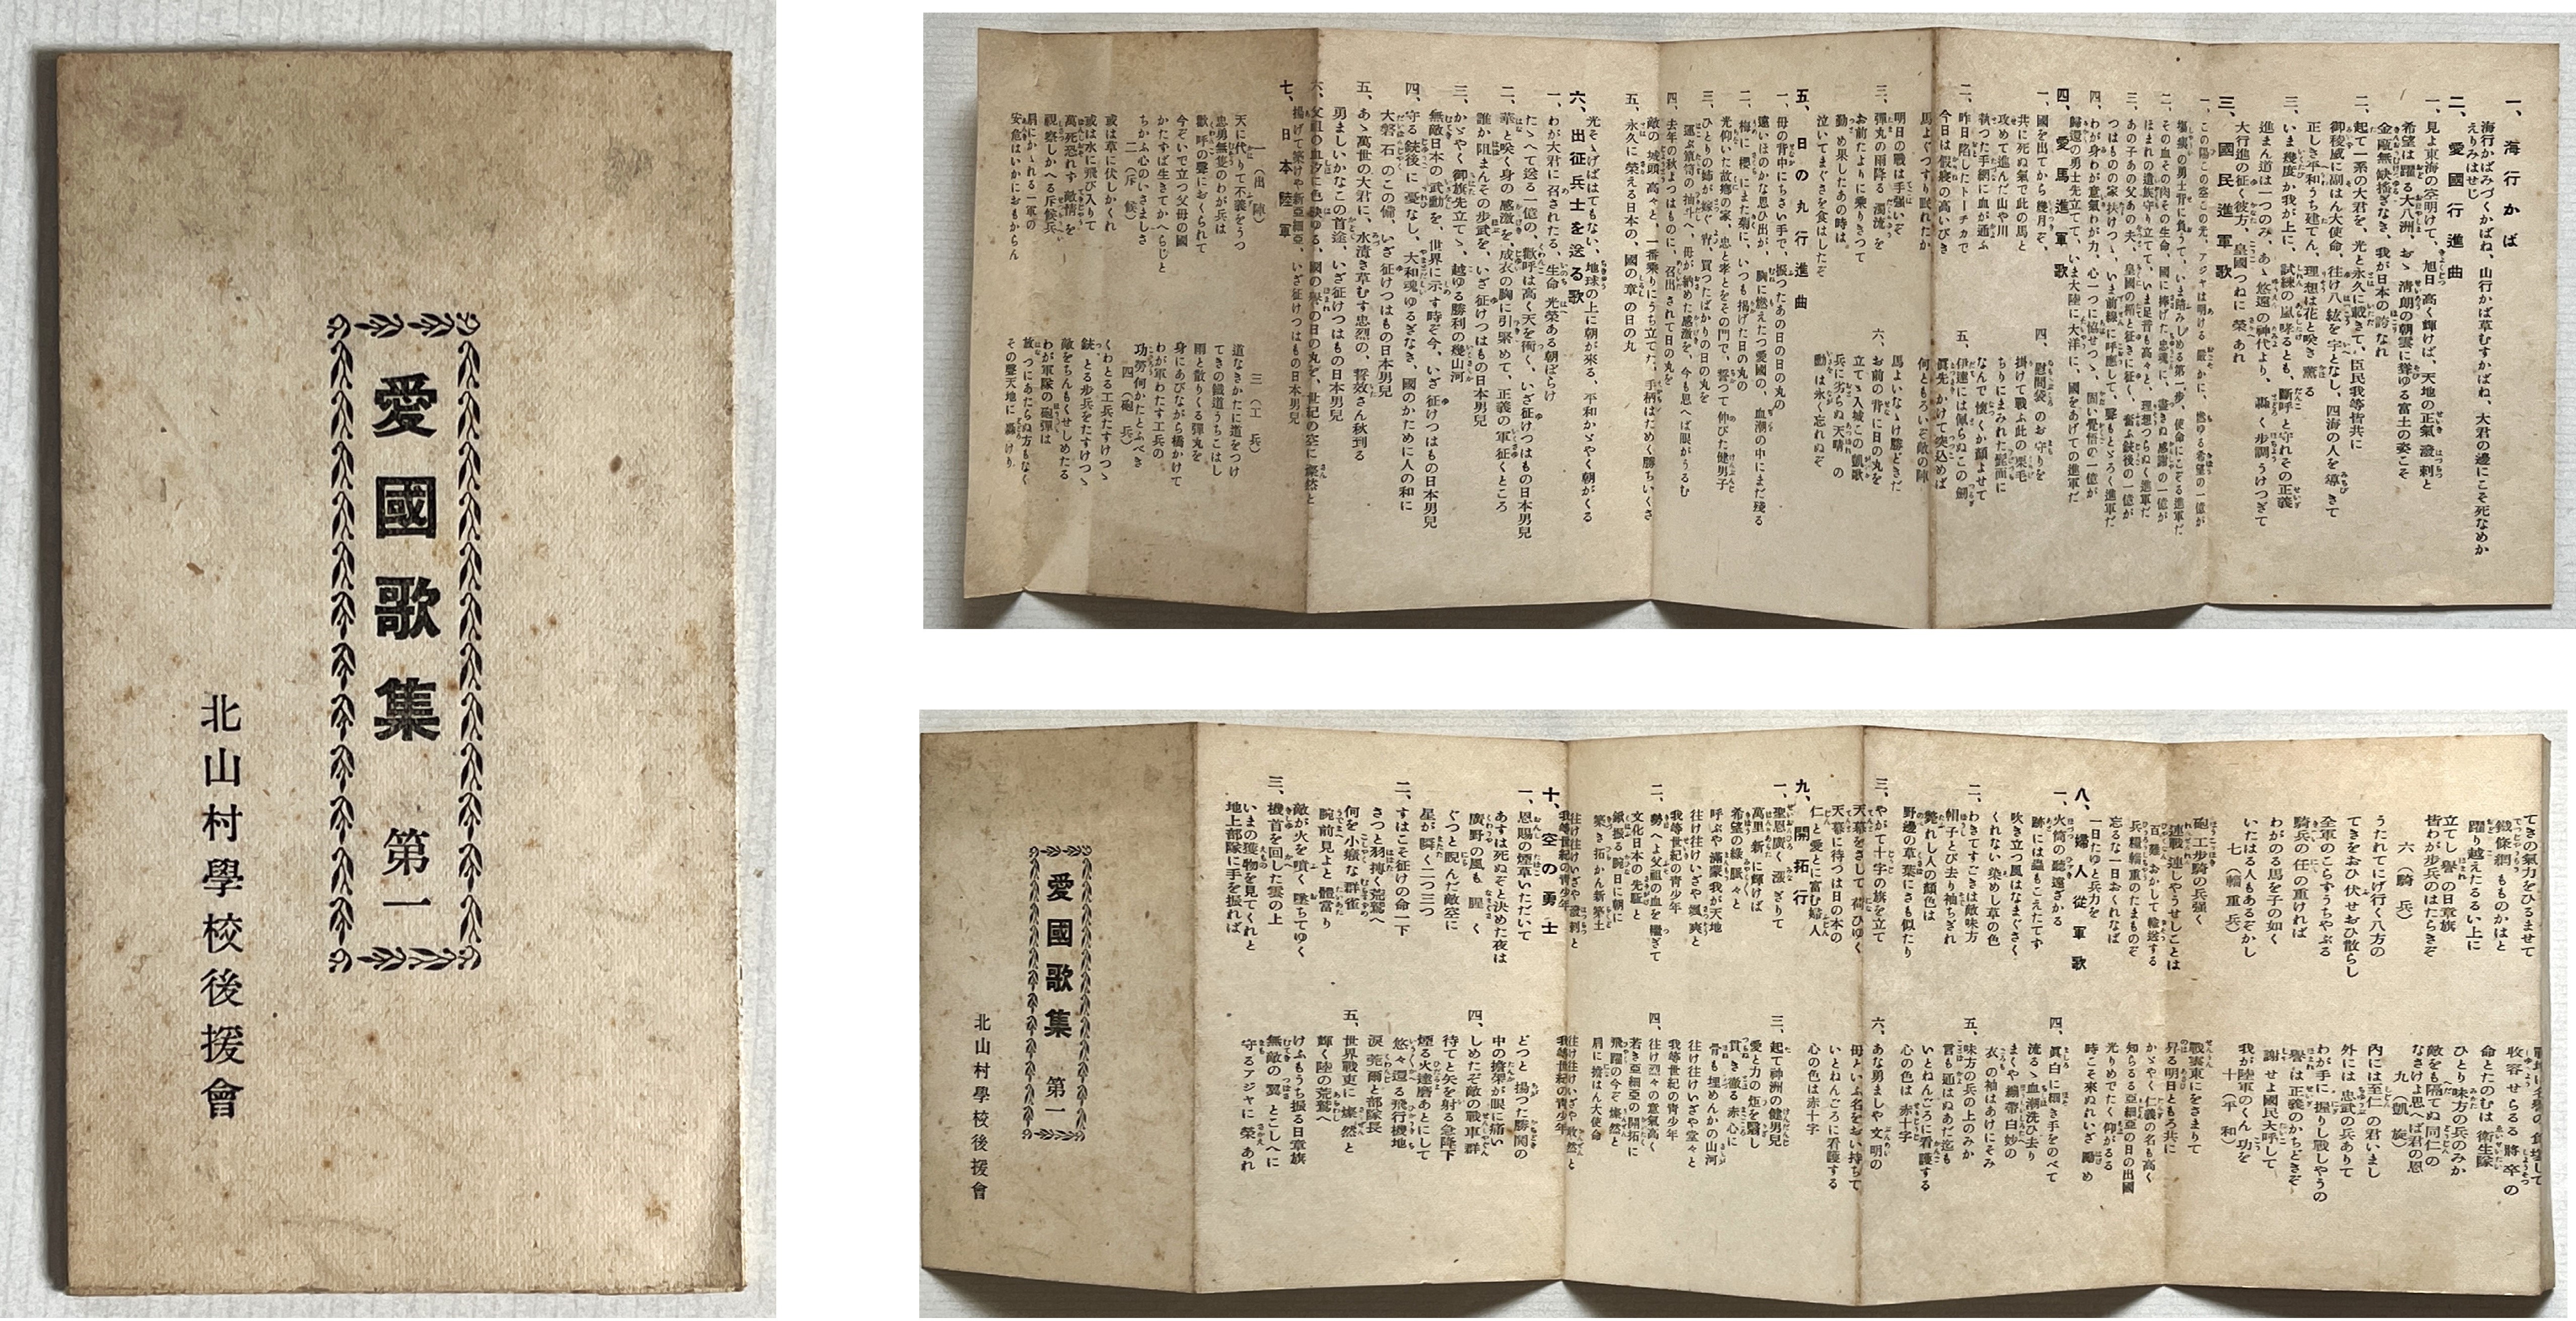 愛國歌集 第一
北山村學校後援會
一、海行かば
海行かばみづくかばね、山行かば草むすかばね、大君の邊にこそ死なめか
えりみはせじ
二、愛國行進曲
一、見よ東海の空明けて、旭日高く輝けば、天地の正氣潑剌と
希望は躍る大八洲、おゝ淸朗の朝雲に聳ゆる富士の姿こそ
金甌無缺搖ぎなき、我が日本の誇なれ
二、起て一系の大君を、光と永久に戴きて、臣民我等皆共に
御稜威に副はん大使命、往け八紘を宇となし、四海の人を導きて
正しき平和うち建てん、理想は花と咲き薫る
三、いま幾度か我が上に、試練の嵐哮るとも、斷乎と守れその正義
進まん道は一つのみ、あゝ悠遠の神代より、轟く步調うけつぎて
大行進の征く彼方、皇國つねに榮あれ
三、國民進軍歌
一、この陽この空この光、アジヤは明ける嚴かに、燃ゆる希望の一億が
傷痍の勇士背に負うて、いま踏みしめる第一步、使命にこぞる進軍だ
二、その血その肉その生命、國に捧げた忠魂に、盡きぬ感謝の一億が
ほまれの遺族守り立てて、いま足音も高々と、理想つらぬく進軍だ
三、あの子あの父あの夫、皇國の楯と征きに征く、奮ふ銃後の一億が
つはものの家扶けつゝ、いま前線に呼應して、聲もとゞろく進軍だ
四、わが身わが意氣わが力、心一つに協せつゝ、固い覺悟の一億が
歸還の勇士先立てて、いま大陸に大洋に、國をあげての進軍だ
四、愛馬進軍歌
一、國を出てから幾月ぞ、
共に死ぬ氣で此の馬と
攻めて進んだ山や川
執つた手綱に血が通ふ
二、昨日陷したトーチカで
今日は假寢の高いびき
馬よぐつすり眠れたか
明日の戰は手强いぞ
三、彈丸の雨降る濁流を
お前たよりに乘りきつて
勤め果したあの時は
泣いてまぐさを食はしたぞ
四、慰問袋のお守りを
掛けて戰ふ此の栗毛
ちりにまみれた髭面に
なんで懷くか顏よせて
五、伊達には佩らぬこの劍
眞先かけて突込めば
何ともろいぞ敵の陣
馬よいなゝけ勝どきだ
六、お前の背に日の丸を
立てゝ入城この凱歌
兵に劣らぬ天晴の
勳は永く忘れぬぞ
五、日の丸行進曲
一、母の背中にちさい手で、振つたあの日の日の丸の
遠いほのかな思ひ出が、胸に燃えたつ愛國の、血潮の中にまだ殘る
二、梅に櫻にまた菊に、いつも揚げた日の丸の
光仰いだ故鄕の家、忠と孝とをその門で、誓つて伸びた健男子
三、ひとりの姉が嫁ぐ宵、買つたばかりの日の丸を
運ぶ簞笥の抽斗へ、母が納めた感激を、今も思へば眼がうるむ
四、去年の秋よつはものに、召出されて日の丸を
敵の城頭高々と、一番乘りにうち立てた、手柄はためく勝ちいくさ
五、永久に榮える日本の、國の章の日の丸
光そゝげばはてもない、地球の上に朝が來る、平和かゞやく朝がくる
六、出征兵士を送る歌
一、わが大君に召されたる、生命光榮ある朝ぼらけ
たゝへて送る一億の、歡呼は高く天を衝く、いざ征けつはもの日本男兒
二、華と咲く身の感激を、戎衣の胸に引緊めて、正義の軍征くところ
誰か阻まんその步武を、いざ征けつはもの日本男兒
三、かゞやく御旗先立てゝ、越ゆる勝利の幾山河
無敵日本の武勳を、世界に示す時ぞ今、いざ征けつはもの日本男兒
四、守る銃後に憂なし、大和魂ゆるぎなき、國のかために人の和に
大磐石のこの備、いざ征けつはもの日本男兒
五、あゝ萬世の大君に、水漬き草むす忠烈の、誓效さん秋到る
勇ましいかなこの首途、いざ征けつはもの日本男兒
六、父祖の血汐に色映ゆる、國の譽の日の丸を、世紀の空に燦然と
揚げて築けや新亞細亞、いざ征けつはもの日本男兒
七、日本陸軍
一（出陣）
天に代りて不義をうつ
忠勇無雙のわが兵は
歡呼の聲におくられて
今ぞいで立つ父母の國
かたずば生きてかへらじと
ちかふ心のいさましさ
二（斥候）
或は草に伏しかくれ
或は水に飛び入りて
萬死恐れず敵情を
視察しかへる斥候兵
肩にかゝれる一軍の
安危はいかにおもからん
三（工兵）
道なきかたに道をつけ
てきの鐵道うちこはし
雨と散りくる彈丸を
身にあびながら橋かけて
わが軍わたす工兵の
功勞何かたとふべき
四（砲兵）
くわとる工兵たすけつゝ
銃とる步兵をたすけつゝ
敵をちんもくせしめたる
わが軍隊の砲彈は
放つにあたらぬ方もなく
その聲天地に轟けり
てきの氣力をひるませて
鐵條網もものかはと
躍り越えたるるい上に
立てし譽の日章旗
皆わが步兵のはたらきぞ
六（騎兵）
うたれてにげ行く八方の
てきをおひ伏せおひ散らし
全軍のこらずうちやぶる
騎兵の任の重ければ
わがのる馬を子の如く
いたはる人もあるぞかし
七（輜重兵）
砲工步騎の兵强く
連戰連しやうせしことは
百難おかして輸送する
兵糧輜重のたまものぞ
忘るな一日おくれなば
一日たゆと兵力を
收容せらるる將卒の
命とたのむは衛生隊
ひとり味方の兵のみか
敵をも隔てぬ同仁の
なさけよ思へば君の恩
九（凱旋）
內には至仁の君いまし
外には忠武の兵ありて
わが手に握りし戰しやうの
譽は正義のかちどきぞ
謝せよ國民大呼して
我が陸軍のくん功を
十（平和）
戰雲東にをさまりて
昇る明日ともろ共に
かゞやく仁義の名も高く
知らるる亞細亞の日の出國
光りめでたく仰がるる
時こそ來ぬれいざ勵め
八、婦人從軍歌
一、火筒の聽遠ざかる
跡には蟲もこえたてず
吹き立つ風はなまぐさく
くれない染めし草の色
二、わきてすごきは敵味方
帽子とび去り袖ちぎれ
斃れし人の顏色は
野邊の草葉にさも似たり
三、やがて十字の旗を立て
天幕をさして荷ひゆく
天幕に待つは日の本の
仁と愛とに富む婦人
四、眞白に細き手をのべて
流るゝ血潮洗ひ去り
まくや繃帶白妙の
衣の袖はあけにそみ
五、味方の兵の上のみか
言も通はぬあだ迄も
いとねんごろに看護する
心の色は赤十字
六、あな勇ましや文明の
母といふ名をおい持ちて
いとねんごろに看護する
心の色は赤十字
九、開拓行
一、聖恩廣く漲ぎりて
萬里新に輝けば
希望の綠脈々と
呼ぶや滿蒙我が天地
往け往けいざや颯爽と
我等世紀の靑少年
二、勢へよ父祖の血を繼ぎて
文化日本の先驅と
鍬振る腕日に朝に
築き拓かん新樂土
往け往けいざや潑剌と
我等世紀の靑少年
三、起て神洲の健男兒
愛と力の炬を翳し
貫き徹る赤心に
骨も埋めんかの山河
往け往けいざや堂々と
我等世紀の靑少年
四、往け烈々の意氣高く
若き亞細亞の開拓に
飛躍の今ぞ燦然と
肩に擔はん大使命
往け往けいざや敢然と
我等世紀の靑少年
十、空の勇士
一、恩賜の煙草いただいて
あすは死ぬぞと決めた夜は
廣野の風も腥く
ぐつと睨んだ敵空に
星が瞬く二つ三つ
二、すはこそ征けの命一下
さつと羽搏く荒鷲へ
何を小癪な群雀
腕前見よと體當り
敵が火を噴く墜ちてゆく
三、機首を回した雲の上
いまの獲物を見てくれと
地上部隊に手を振れば
どつと揚つた勝鬨の
中の擔架が眼に痛い
四、しめたぞ敵の戰車群
待てと矢を射る急降下
煙る火達磨あとにして
悠々還る飛行機地
淚莞爾と部隊長
五、世界戰史に燦然と
輝く陸の荒鷲へ
けふもうち振る日章旗
無敵の翼とこしへに
守るアジヤに榮あれ
愛國歌集 第一
北山村學校後援會